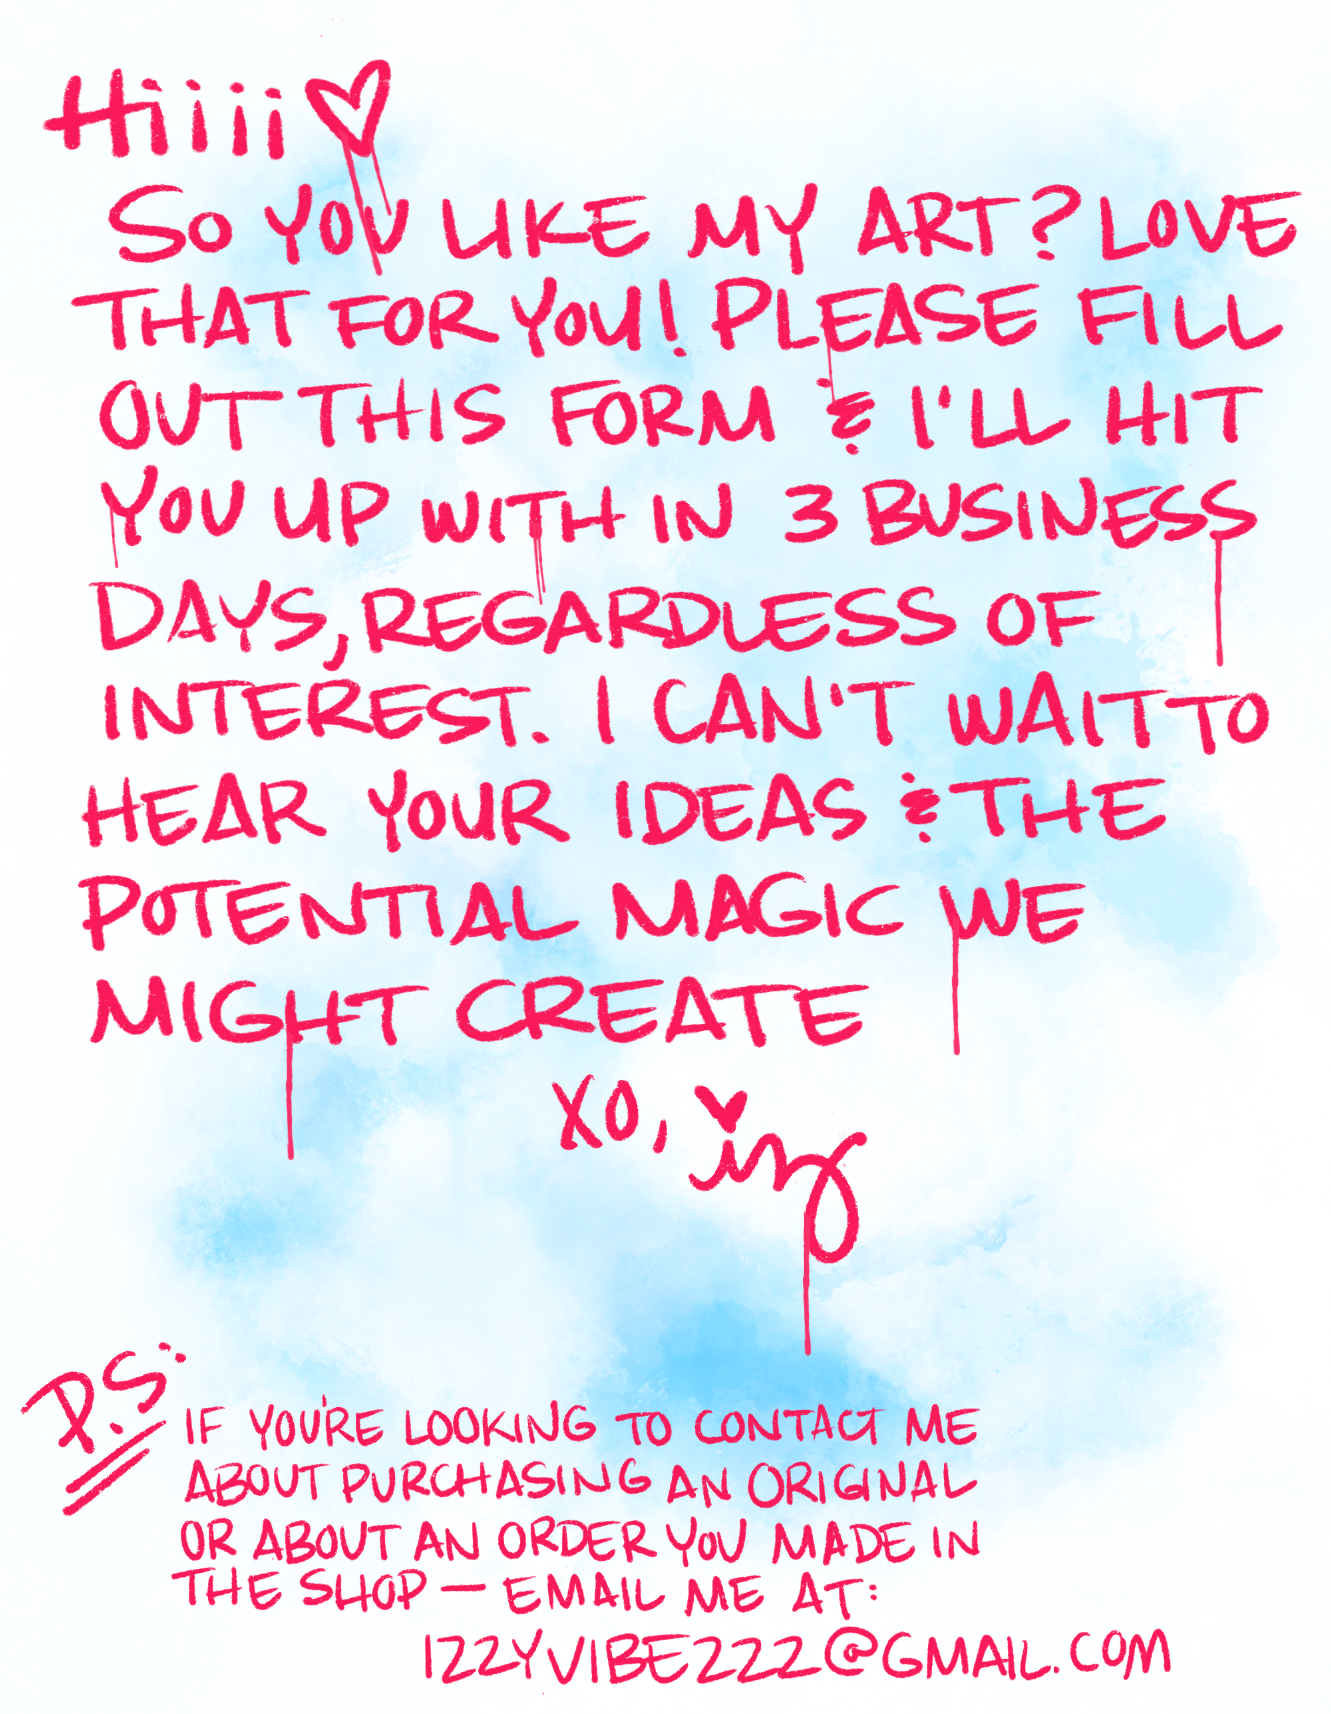 Hiiii ♡
SO YOU LIKE MY ART? LOVE
THAT FOR YOU! PLEASE FILL
OUT THIS FORM & I'LL HIT
YOU UP WITH IN 3 BUSINESS
DAYS, REGARDLESS OF
INTEREST. I CAN'T WAIT TO
HEAR YOUR IDEAS & THE
POTENTIAL MAGIC WE
MIGHT CREATE
XO, iz
P.S:
IF YOU'RE LOOKING TO CONTACT ME
ABOUT PURCHASING AN ORIGINAL
OR ABOUT AN ORDER YOU MADE IN
THE SHOP — EMAIL ME AT:
IZZYVIBEZZZ@GMAIL.COM